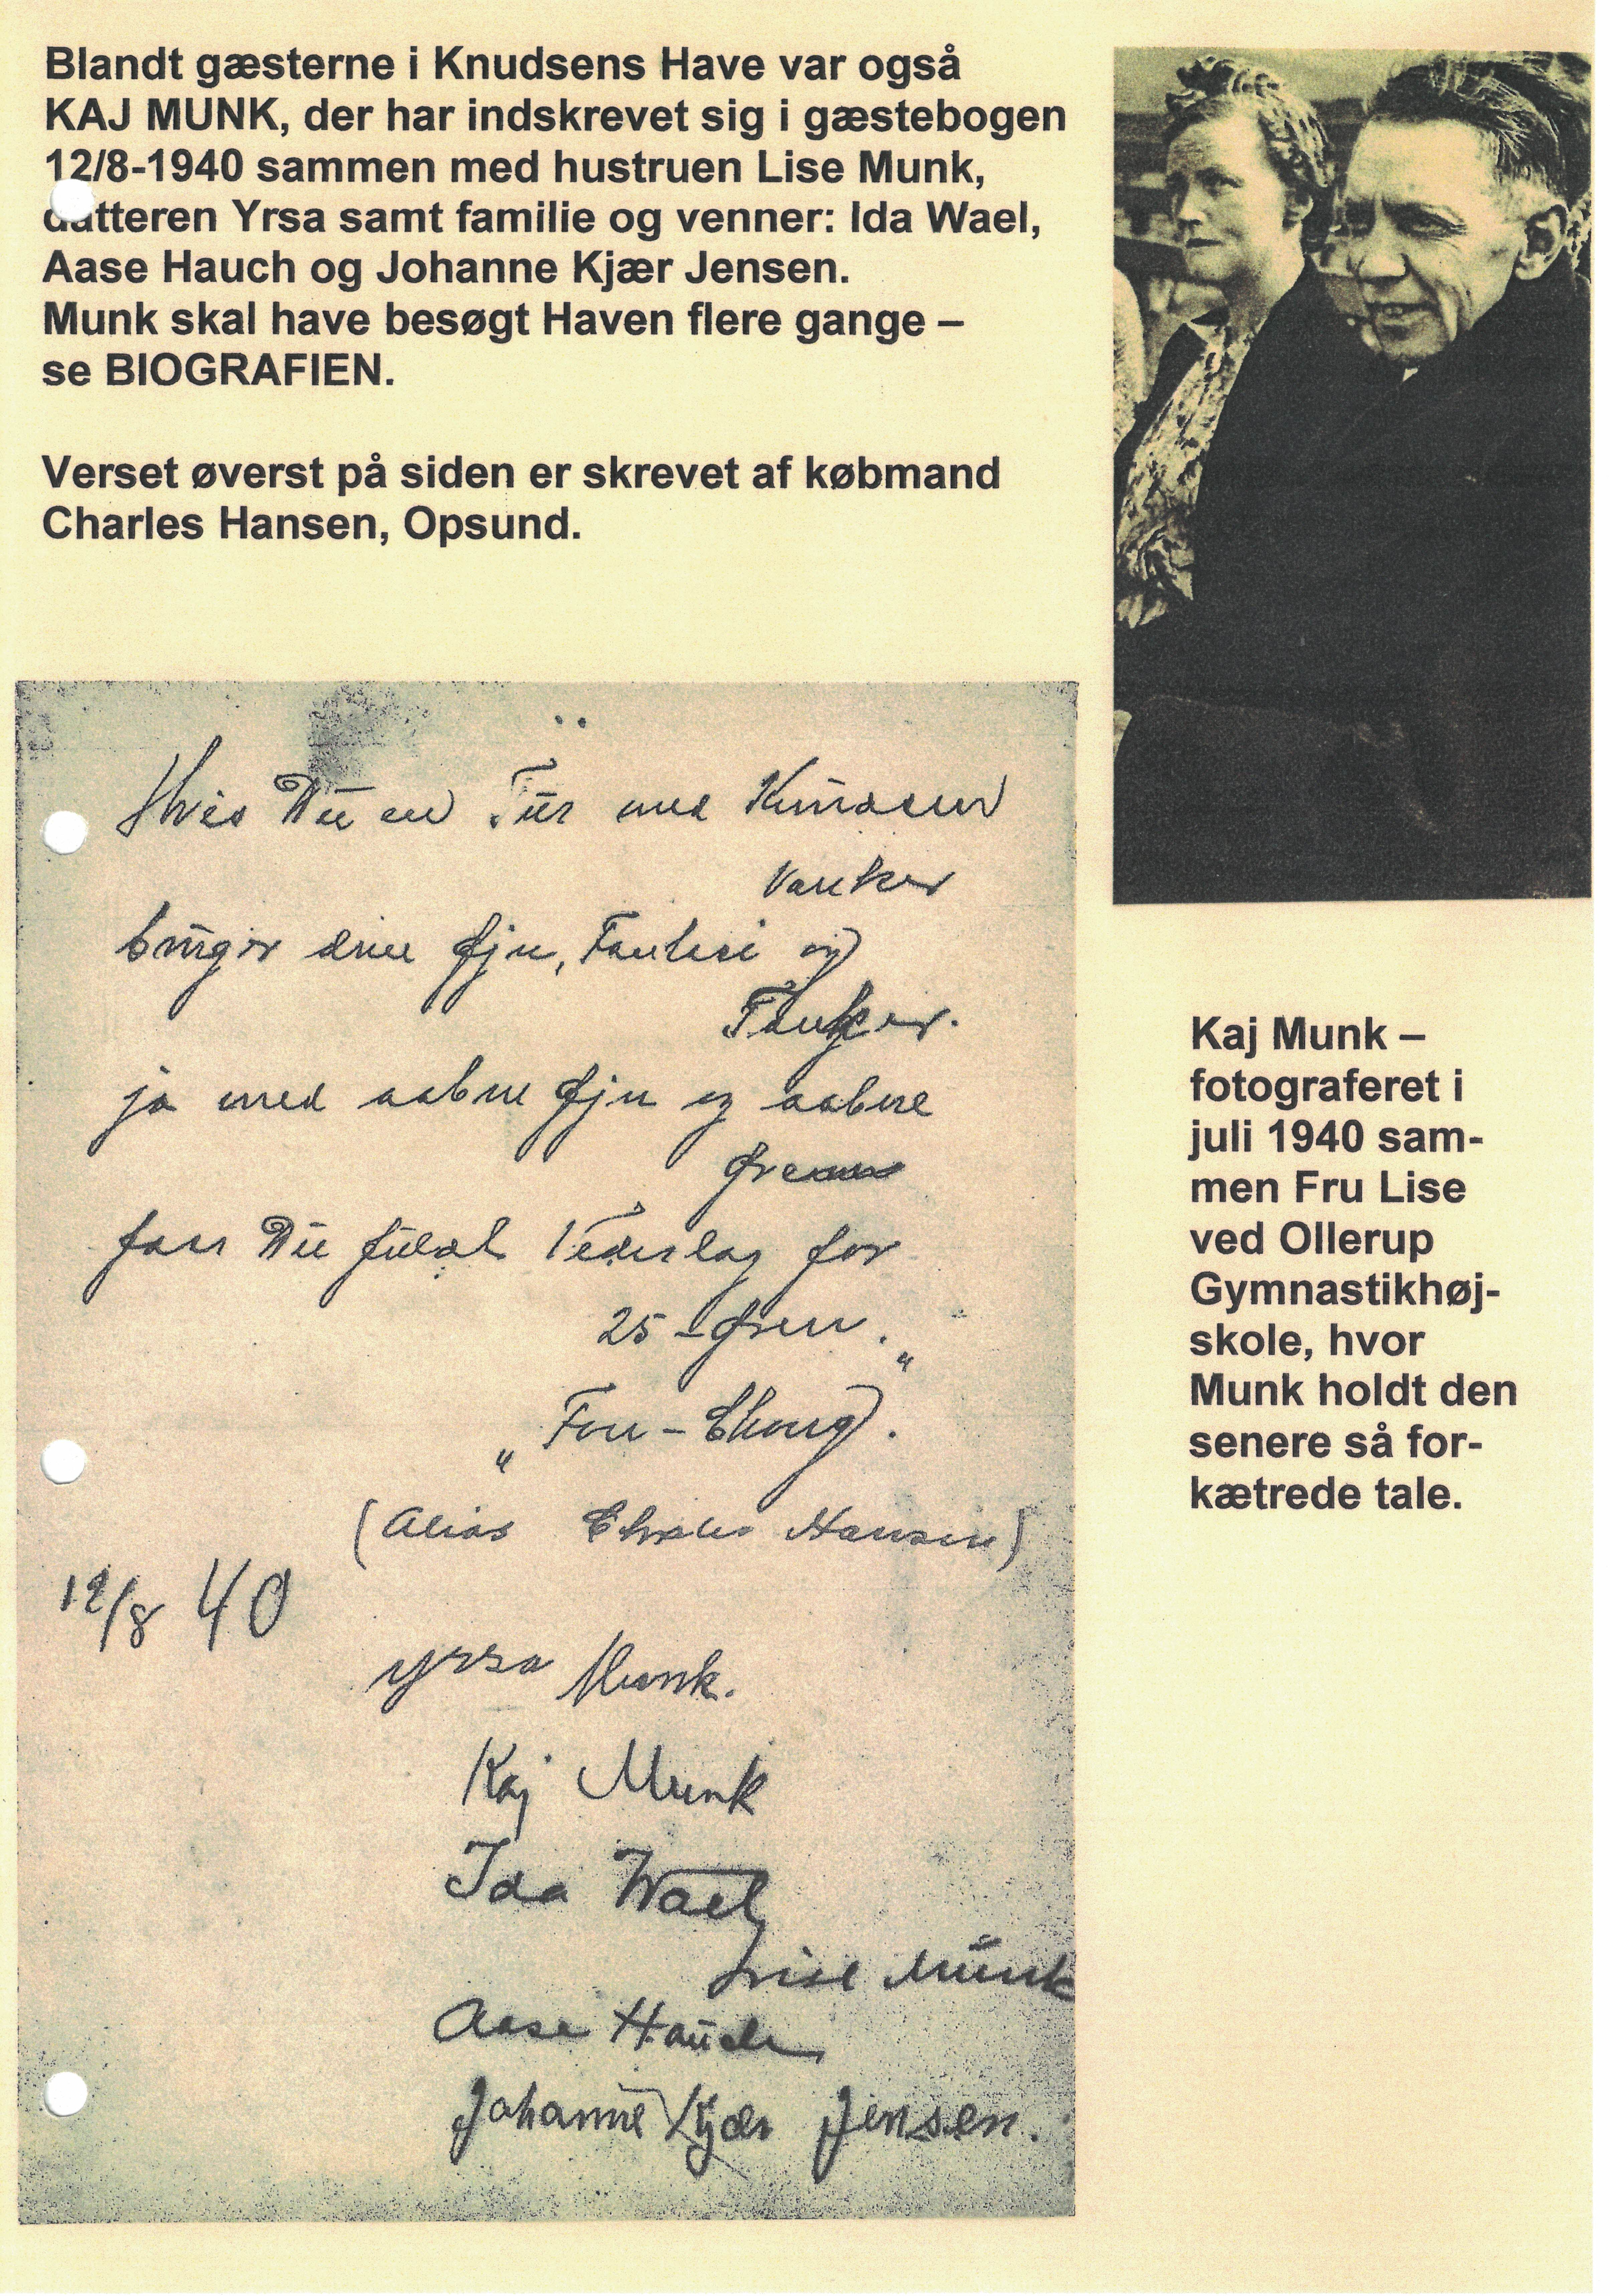 Blandt gæsterne i Knudsens Have var også
KAJ MUNK, der har indskrevet sig i gæstebogen
12/8-1940 sammen med hustruen Lise Munk,
datteren Yrsa samt familie og venner: Ida Wael,
Aase Hauch og Johanne Kjær Jensen.
Munk skal have besøgt Haven flere gange –
se BIOGRAFIEN.
Verset øverst på siden er skrevet af købmand
Charles Hansen, Opsund.
Hvis Du en Tur med Knudsen
Vanker
bruger dine Øjne, Fantasi og
Tanker.
ja med aabne Øjne og aabne
Øren
faar Du fuldt Vederlag for
25-Øren."
"Fou-Chong).
(Alias Charles Hansen)
12/8 40
Yrsa Munk.
Kaj Munk
Ida Wael
Lise Munk
Aase Hauch
Johanne Kjær Jensen.
Kaj Munk –
fotograferet i
juli 1940 sam-
men Fru Lise
ved Ollerup
Gymnastikhøj-
skole, hvor
Munk holdt den
senere så for-
kætrede tale.